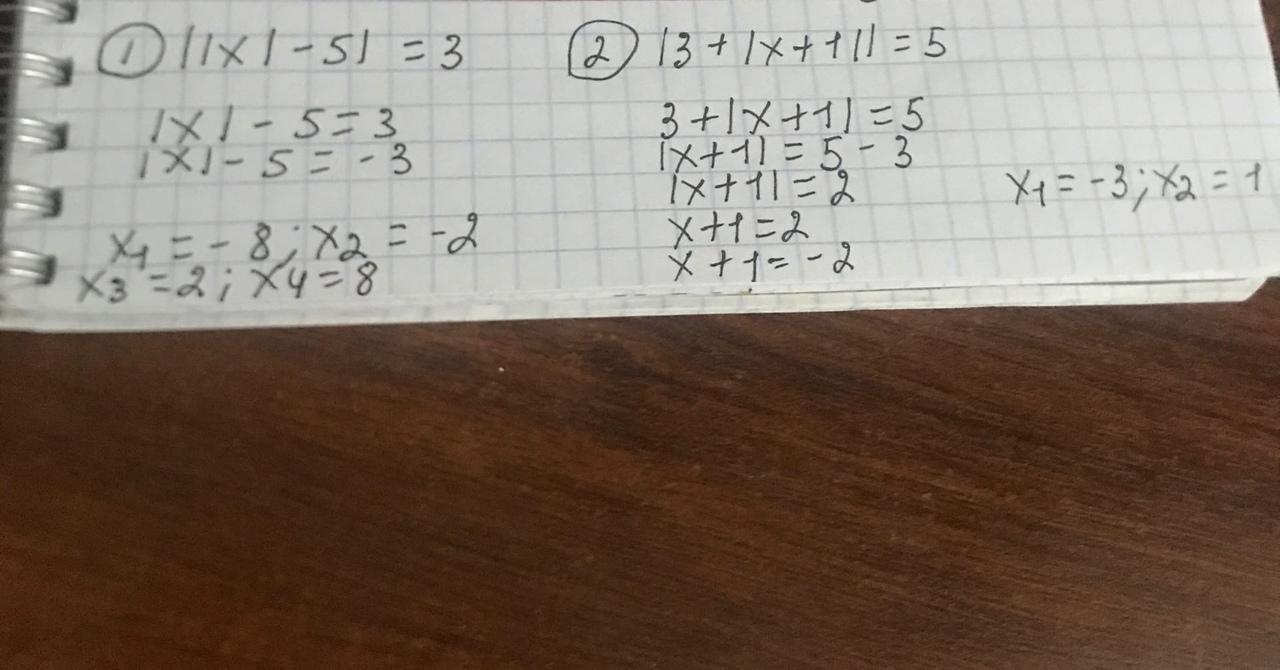 ① ||x| - 5| = 3
|x| - 5 = 3
|x| - 5 = -3
x1 = -8; x2 = -2
x3 = 2; x4 = 8
② |3 + |x + 1|| = 5
3 + |x + 1| = 5
|x + 1| = 5 - 3
|x + 1| = 2
x + 1 = 2
x + 1 = -2
x1 = -3; x2 = 1